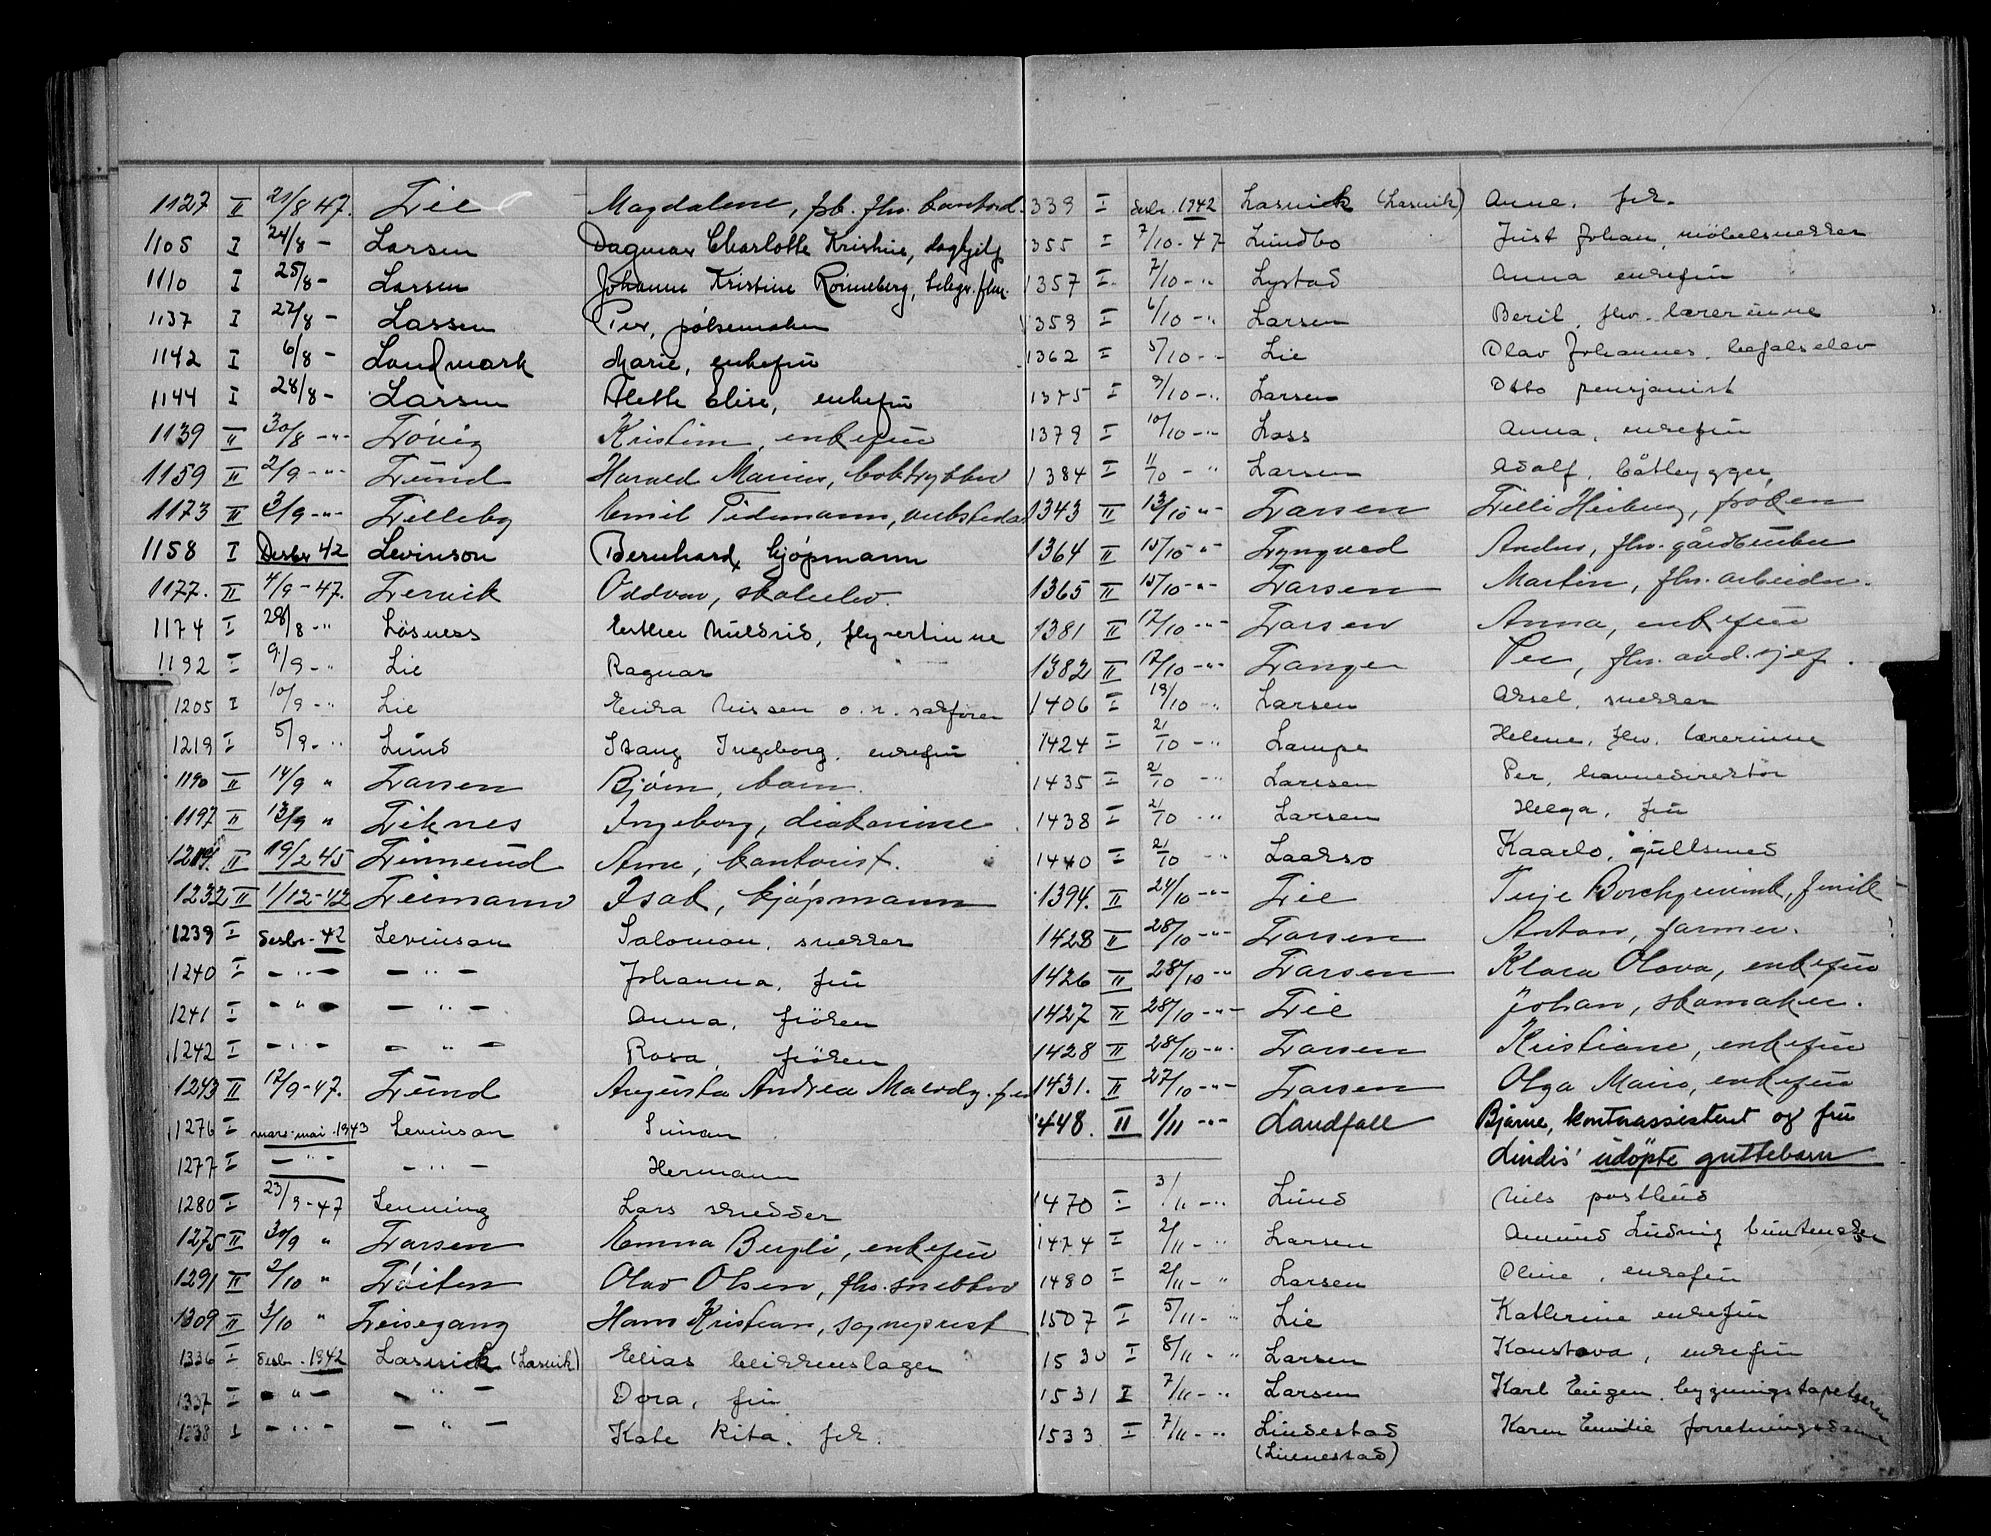 1127 II 21/8 47. Lie Magdalene, pb. fhv. kontord.
1105 I 24/8 – Larsen Dagmar Charlotte Kristine, daghjelp
1110 I 25/8 – Larsen Johanne Kristine Rønneberg, telegr.
1137 I 27/8 – Lassen Per, pølsemaker
1142 I 6/8 – Landmark Marie, enkefru
1144 I 28/8 – Larsen Alette Elise, enkefru
1139 II 30/8 –"– Løvig Kristine, enkefru
1159 II 2/9 –"– Lund Harald Marius, boktrykker
1173 II 3/9 –"– Lilleby Emil Tidemann,
1158 I Desbr 42 Levinson Bernhard, kjøpmann
1177. II 4/9 – 47. Lervik Oddvar, skoleelev.
1174 I 28/8 –" Løsness Esther Hildrid, flyvertinne
1192 I 9/9 –" Lie Ragnar
1205 I 10/9 –" Lie Erika Nissen o.r. sakfører
1219 I 5/9 –" Lund Stang Ingeborg, enkefru
1190 II 14/9 " Larsen Bjørn, barn.
1197 II 13/9 " Liknes Ingeborg, diakonisse
1219. II 19/2 45 Linnerud Arne, kontorist.
1232 II 1/12 – 42 Leimann Isak, kjøpmann
1239 I Desbr – 42 Levinson Salomon, snekker
1240 I – " – – " – Johanna, fru
1241 I – " – – " – Anna, frøken
1242 I – " – – " – Rosa, frøken
1243 II 12/9 – 47. Lund Augusta Andrea Mathilde, fru
1276 I mars-mai 1943 Levinson Simon
1277 I – " – – " – Hermann
1280 I 23/9 – 47 Lenning Lars skredder
1275 II 30/9 " Larsen Emma Bergli, enkefru
1291 II 2/10 " Løiten Olav Olsen, fhv. snekker
1309 II 3/10 " Leisegang Hans Kristian, sogneprest
1336 I Desbr. 1942 Lasnick (Lasnik) Elias blikkenslager
1337 I – " – – " – Dora, fru
1338 I – " – – " – Kate Rita, frk.
339 I Desbr. 1942 Lasnick (Lasnik) Anna, frk.
1355 I 7/10 – 47 Lundbo Just Johan, møbelsnekker
1357 I 7/10 –" Lystad Anna enkefru
1359 I 6/10 –" Larsen Beril, fhv. lærerinne
1362 I 5/10 –" Lie Olav Johannes, befalselev
1375 I 9/10 –" Larsen Otto pensjonist
1379 I 10/10 –" Loss Anna, enkefru
1384 I 11/10 –" Larsen Adolf, båtbygger,
1343 II 13/10 " Larsen Lilli Heiberg, frøken
1364 II 15/10 –" Lyngved Anders, fhv. gårdbruker
1365 II 15/10 –" Larsen Martin, fhv. arbeider.
1381 II 17/10 –"– Larsen Anna, enkefru
1382 II 17/10 –"– Langer Per, fhv. avd. sjef.
1406 I 19/10 –" Larsen Aksel, snekker
1424 I 21/10 –" Lampe Helene, fhv. lærerinne
1435 I 21/10 –" Larssen Per, bankdirektør
1438 I 21/10 –" Larsen Helga, fru
1440 I 21/10 –" Laakso Kaarlo, gullsmed
1394. II 24/10 –"– Lie Terje Borchgrevink,
1423 II 28/10 –"– Larsen Anton, farmer.
1426 II 28/10 –" Larsen Klara Olava, enkefru
1427 II 28/10 –"– Lie Johan, skomaker.
1428 II 28/10 –". Larsen Kristiane, enkefru
1431. II 27/10 –"– Larsen Olga Marie, enkefru
1448. II 1/11 –"– Landfall Bjarne, kontorassistent og fru
Lindis' udøpte guttebarn
1470 I 3/11 –" Lund Nils postbud
1474 I 2/11 –" Larsen Amund Ludvig buntmaker
1480 I 2/11 –" Larsen Oline, enkefru
1507 I 5/11 –" Lie Kathrine enkefru
1530 I 8/11 –" Larsen Konstava, enkefru
1531 I 7/11 –" Larsen Karl Eugen, bygningstapetserer
1533 I 7/11 –" Lindestad Karen Emilie forretningsdame
(Linnestad)